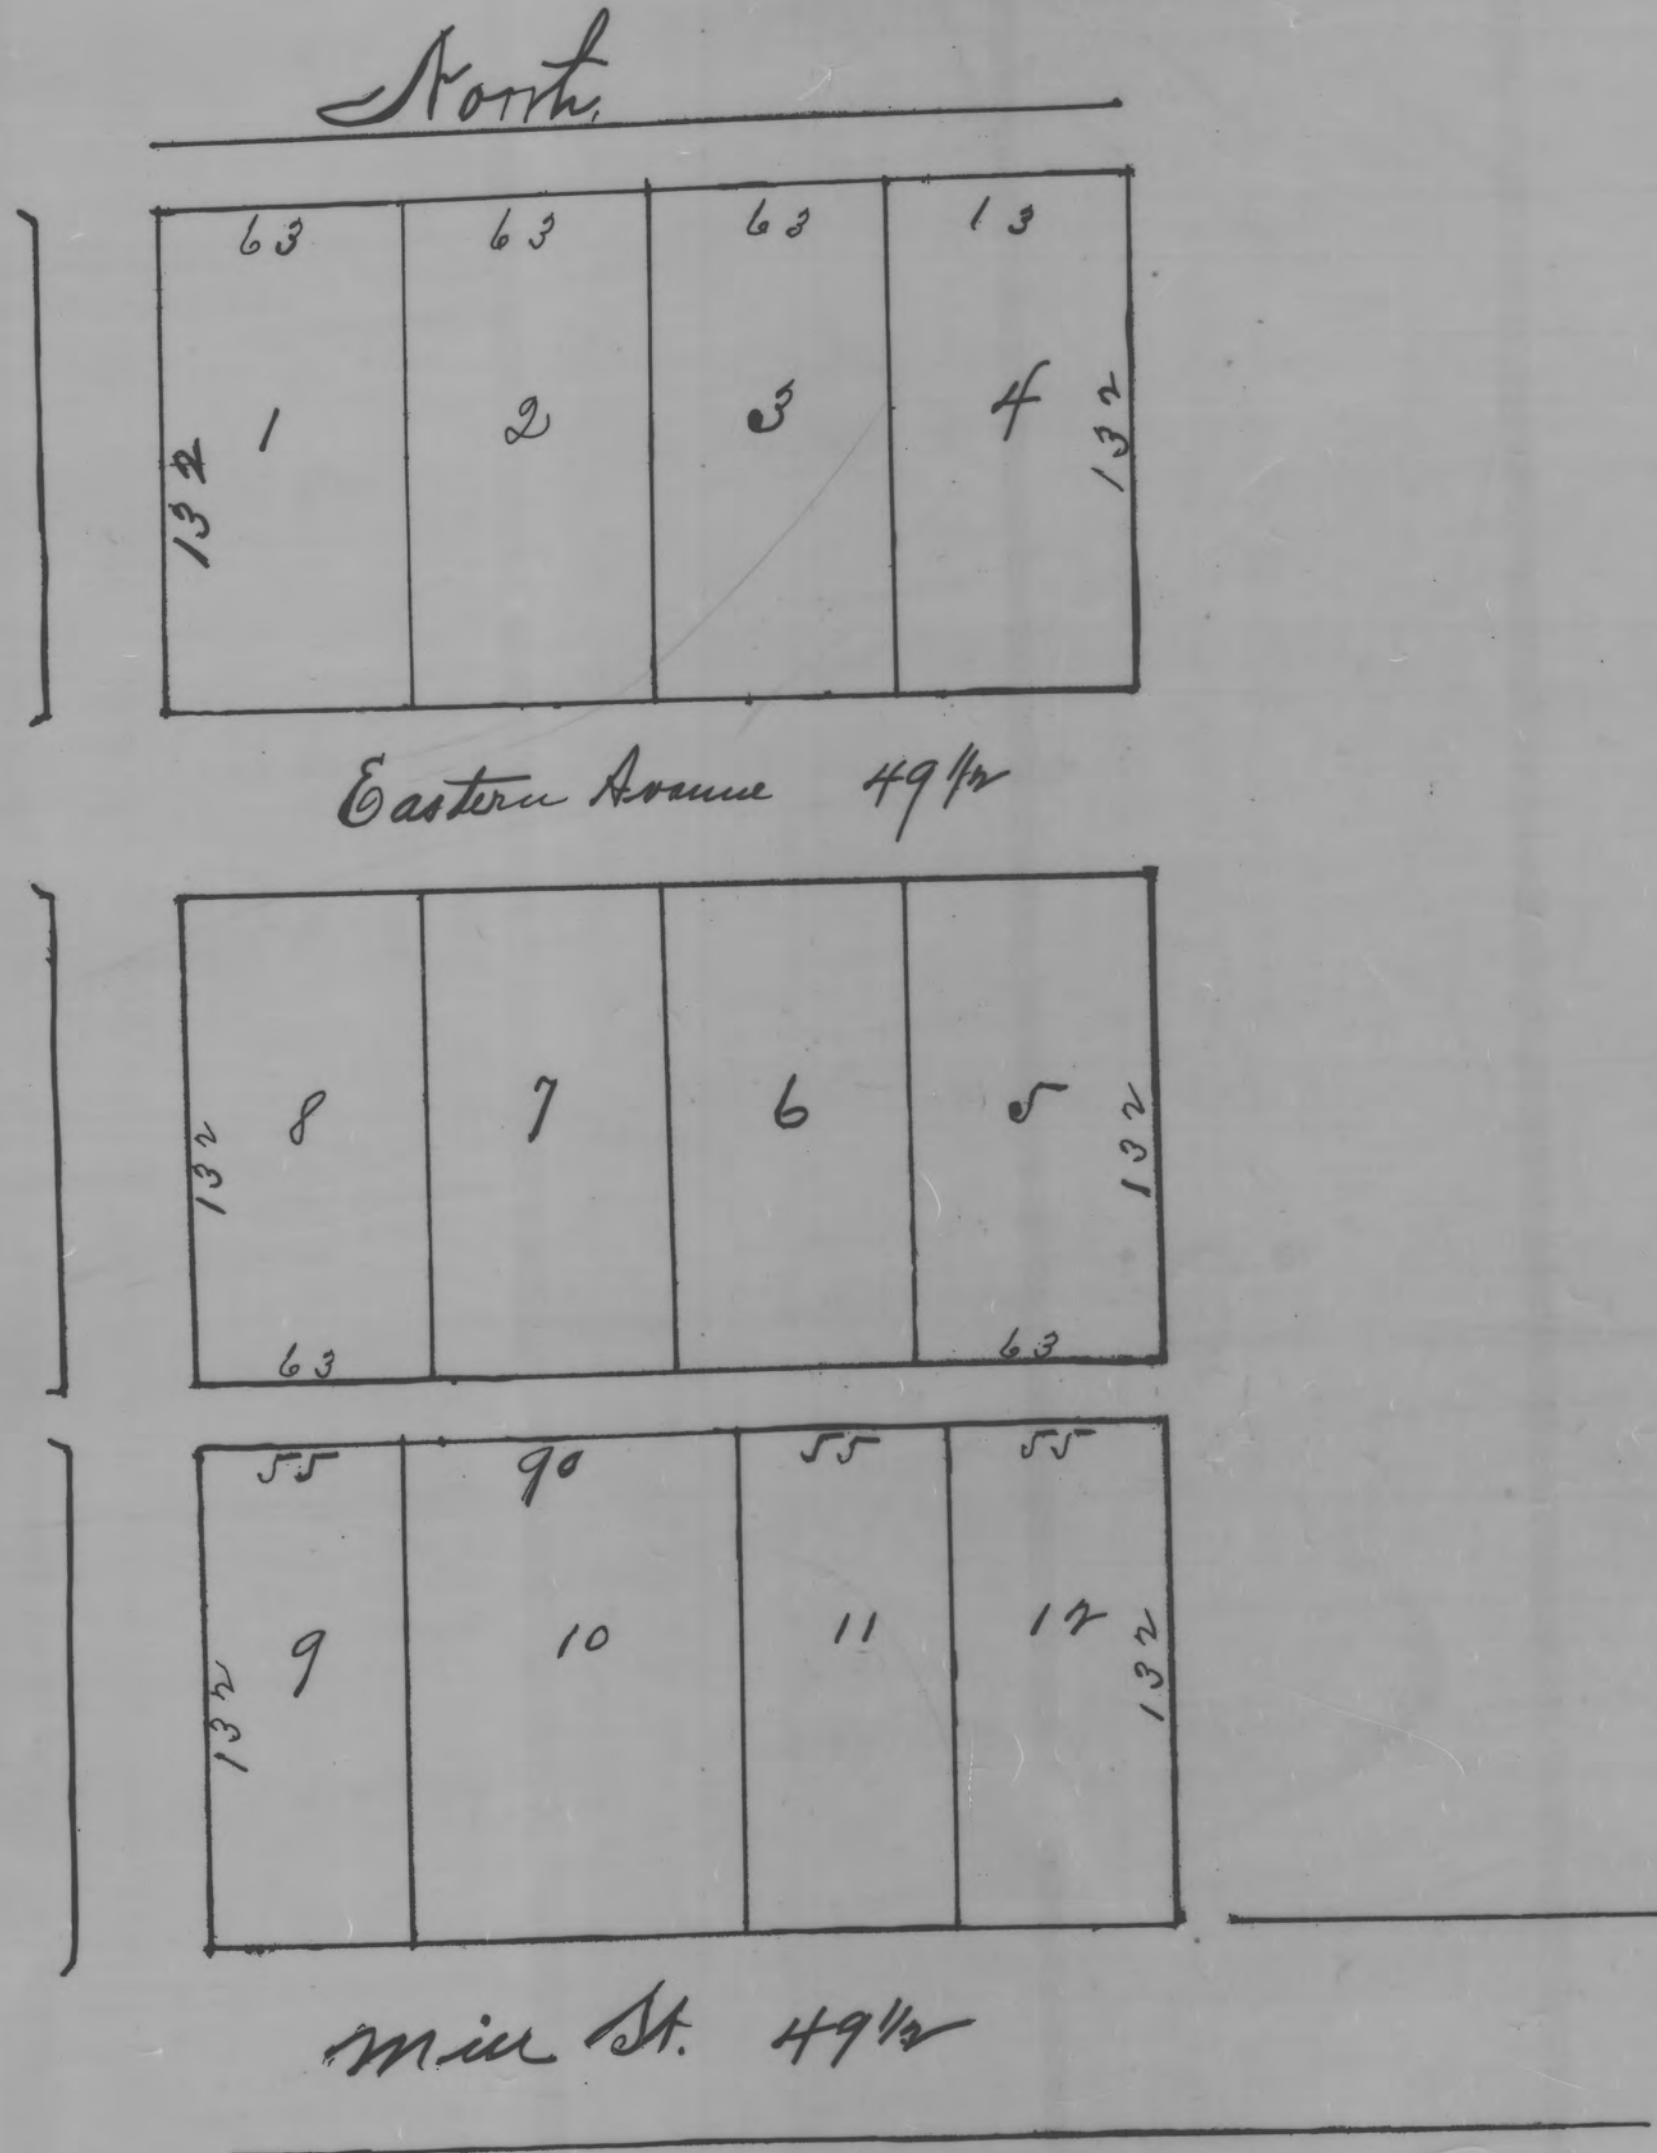 North.
63 63 63 13
1 2 3 4
132 132
Eastern Avenue 49 1/2
8 7 6 5
132 132
63 63
55 90 55 55
9 10 11 12
132 132
Mill St. 49 1/2